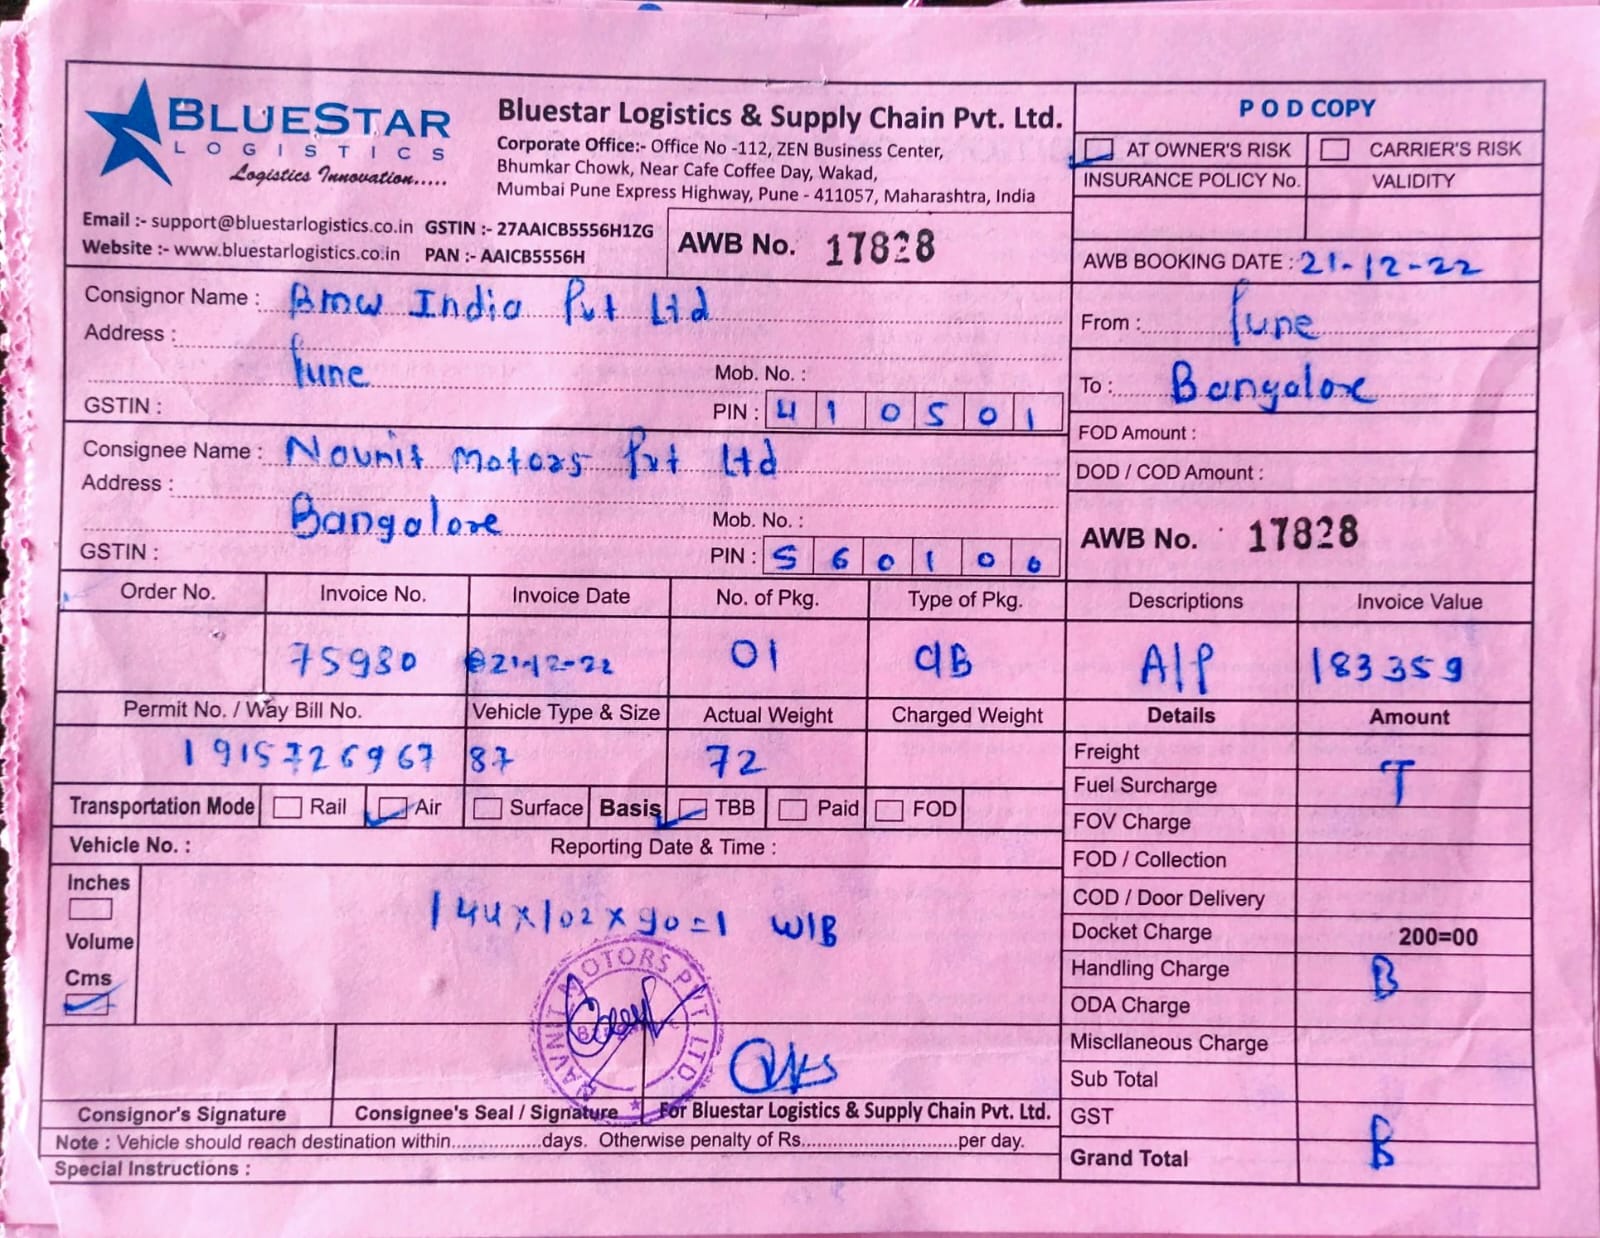 BLUESTAR
LOGISTICS
Logistics Innovation.....
Bluestar Logistics & Supply Chain Pvt. Ltd.
Corporate Office:- Office No -112, ZEN Business Center,
Bhumkar Chowk, Near Cafe Coffee Day, Wakad,
Mumbai Pune Express Highway, Pune - 411057, Maharashtra, India
Email :- support@bluestarlogistics.co.in GSTIN :- 27AAICB5556H1ZG
Website :- www.bluestarlogistics.co.in PAN :- AAICB5556H
AWB No. 17828
P O D COPY
AT OWNER'S RISK CARRIER'S RISK
INSURANCE POLICY No. VALIDITY
AWB BOOKING DATE : 21-12-22
Consignor Name : Bmw India Pvt Ltd
Address :
Pune
Mob. No. :
GSTIN : PIN : 410501
From : Pune
To : Bangalore
Consignee Name : Navnit Motors Pvt Ltd
Address :
Bangalore
Mob. No. :
GSTIN : PIN : 560106
FOD Amount :
DOD / COD Amount :
AWB No. 17828
Order No. Invoice No. Invoice Date No. of Pkg. Type of Pkg. Descriptions Invoice Value
75930 21-12-22 01 CIB A/P 183359
Permit No. / Way Bill No. Vehicle Type & Size Actual Weight Charged Weight Details Amount
191572696787 72
Transportation Mode Rail Air Surface Basis TBB Paid FOD
Vehicle No. : Reporting Date & Time :
Inches
Volume
Cms
144x102x90=1 W/B
Freight
Fuel Surcharge T
FOV Charge
FOD / Collection
COD / Door Delivery
Docket Charge 200=00
Handling Charge B
ODA Charge
Miscllaneous Charge
Sub Total
GST
Grand Total B
NAVNIT MOTORS PVT. LTD.
Consignor's Signature Consignee's Seal / Signature For Bluestar Logistics & Supply Chain Pvt. Ltd.
Note : Vehicle should reach destination within.................days. Otherwise penalty of Rs.............................per day.
Special Instructions :